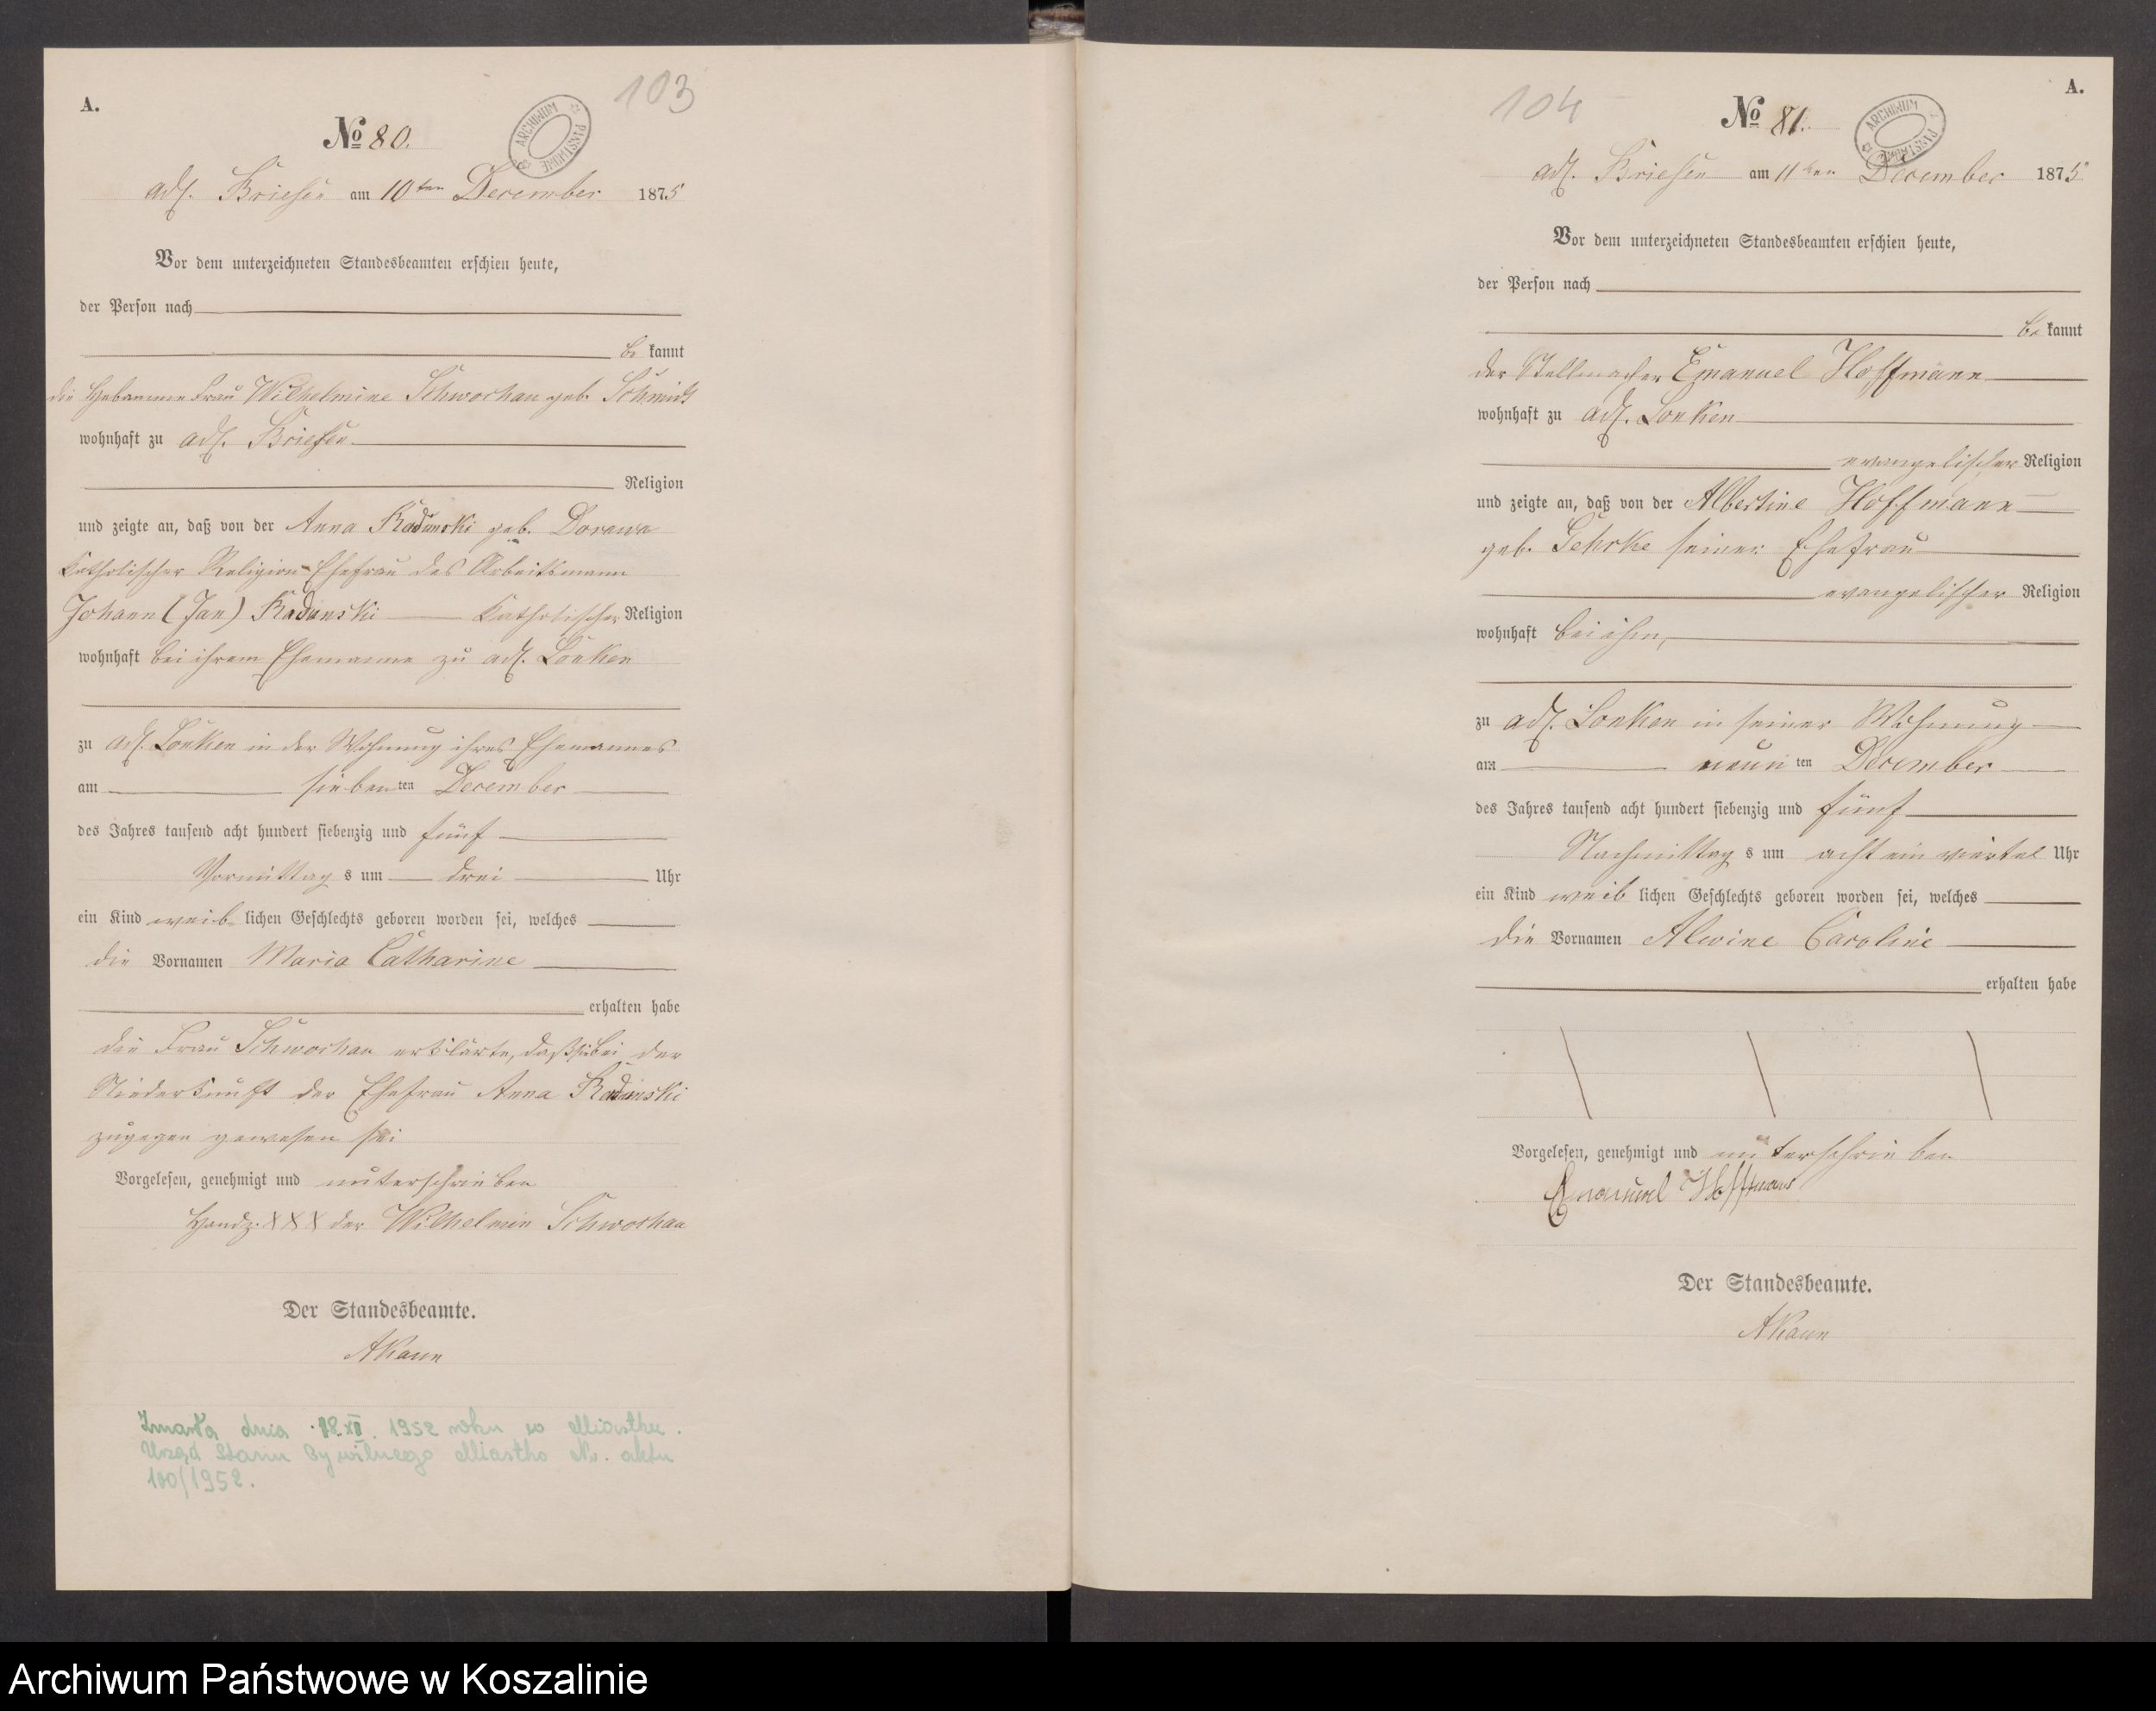 103
A.
ARCHIWUM PAŃSTWOWE
No 80.
adl. Briesen am 10ten December 1875
Vor dem unterzeichneten Standesbeamten erschien heute,
der Person nach
be kannt
die Hebamme Frau Wilhelmine Schwochau geb. Schmidt
wohnhaft zu adl. Briesen
Religion
und zeigte an, daß von der Anna Radunski geb. Dorawa
katholischer Religion Ehefrau des Arbeitsmann
Johann (Jan) Radunski katholischer Religion
wohnhaft bei ihrem Ehemanne zu adl. Lonken
zu adl. Lonken in der Wohnung ihres Ehemannes
am siebenten December
des Jahres tausend acht hundert siebenzig und fünf
Vormittag s um drei Uhr
ein Kind weib lichen Geschlechts geboren worden sei, welches
die Vornamen Maria Catharine
erhalten habe
die Frau Schwochau erklärte, daß sie bei der
Niederkunft der Ehefrau Anna Radunski
zugegen gewesen sei
Vorgelesen, genehmigt und unterschrieben
Handz. XXX der Wilhelmin Schwochau
Der Standesbeamte.
AKaun
Zmarła dnia 18.XII. 1952 roku w Miastku.
Urząd Stanu Cywilnego Miastko Nr. aktu
100/1952.
104
A.
ARCHIWUM PAŃSTWOWE
No 81.
adl. Briesen am 11ten December 1875
Vor dem unterzeichneten Standesbeamten erschien heute,
der Person nach
be kannt
der Stellmacher Emanuel Hoffmann
wohnhaft zu adl. Lonken
evangelischer Religion
und zeigte an, daß von der Albertine Hoffmann
geb. Gehrke seiner Ehefrau
evangelischer Religion
wohnhaft bei ihm,
zu adl. Lonken in seiner Wohnung
am neun ten December
des Jahres tausend acht hundert siebenzig und fünf
Nachmittag s um acht ein viertel Uhr
ein Kind weib lichen Geschlechts geboren worden sei, welches
die Vornamen Alwine Caroline
erhalten habe
Vorgelesen, genehmigt und unterschrieben
Emanuel Hoffmann
Der Standesbeamte.
AKaun
Archiwum Państwowe w Koszalinie